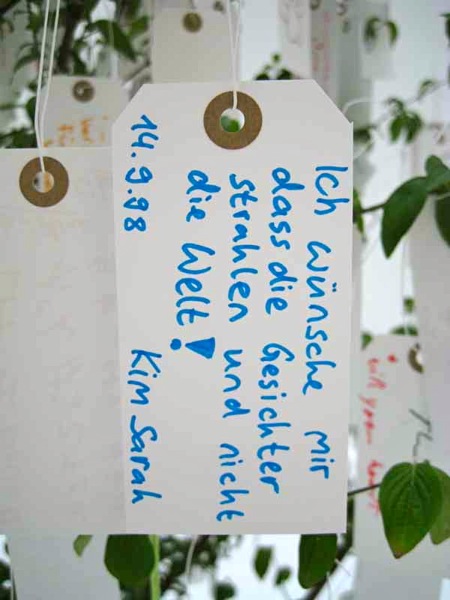 Ich wünsche mir
dass die Gesichter
strahlen und nicht
die Welt!
14.9.98 Kim Sarah